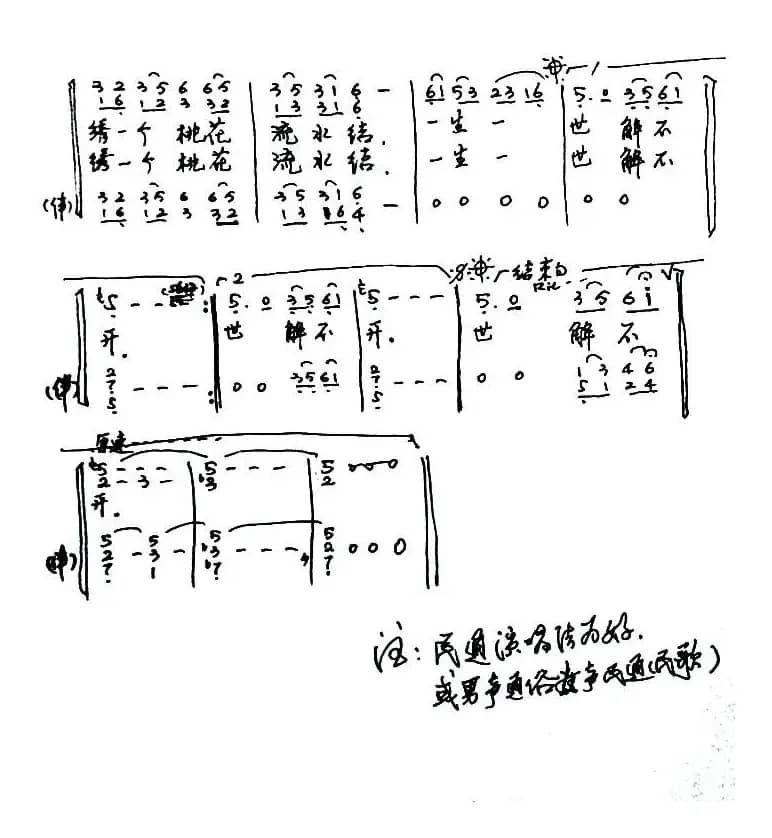 3 2 3 5 6 6 5 3 5 3 1 6 - 6 1 5 3 2 3 1 6 5 . 0 3 5 6 1
1 6 1 2 3 3 2 1 3 3 1 6
绣一个 桃花 流水结. 一生一 世 解不
绣一个 桃花 流水结. 一生一 世 解不
3 2 3 5 6 6 5 3 5 3 1 6
(伴) 1 6 1 2 3 3 2 1 3 1 6 4 - 0 0 0 0 0 0
2 结束句
5 - - - : 5 . 0 3 5 6 1 5 - - - 5 . 0 3 5 6 i
开. 世 解不 开. 世 解不
(伴) 2 7 5 - - - : 0 0 3 5 6 1 2 7 5 - - - 0 0 1 3 4 6
5 1 2 4
原速
5 - - - 5 - - - 5 0 0 0
2 - 3 - b3 2
开.
5 5 5 5
(伴) 2 - 3 - b3 - - - 2 0 0 0
7 1 b7 7
注:民通演唱法为好.
或男声通俗女声民通(民歌)